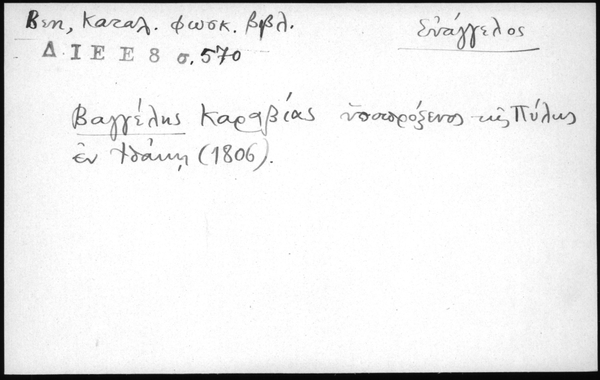 Βεη, Καταλ. φωσκ. βιβλ.
Εὐάγγελος
Δ ΙΕΕ Ε 8 σ. 570
Βαγγέλης Καραβίας ὑποπρόξενος τῆς Πύλης
ἐν Ἰθάκῃ (1806).